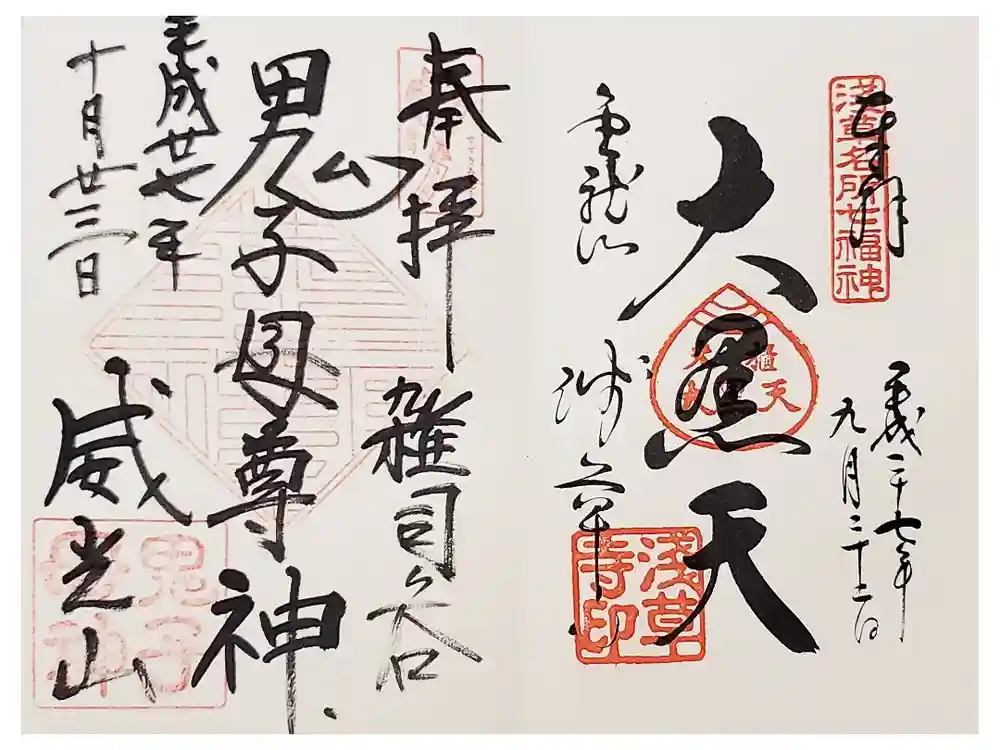 奉拝
浅草名所七福神
平成二十七年
九月二十二日
大黒天
金龍山
浅草寺
浅草寺印
奉拝
雑司ケ谷
鬼子母尊神
平成廿七年
十月廿三日
威光山
鬼子母神